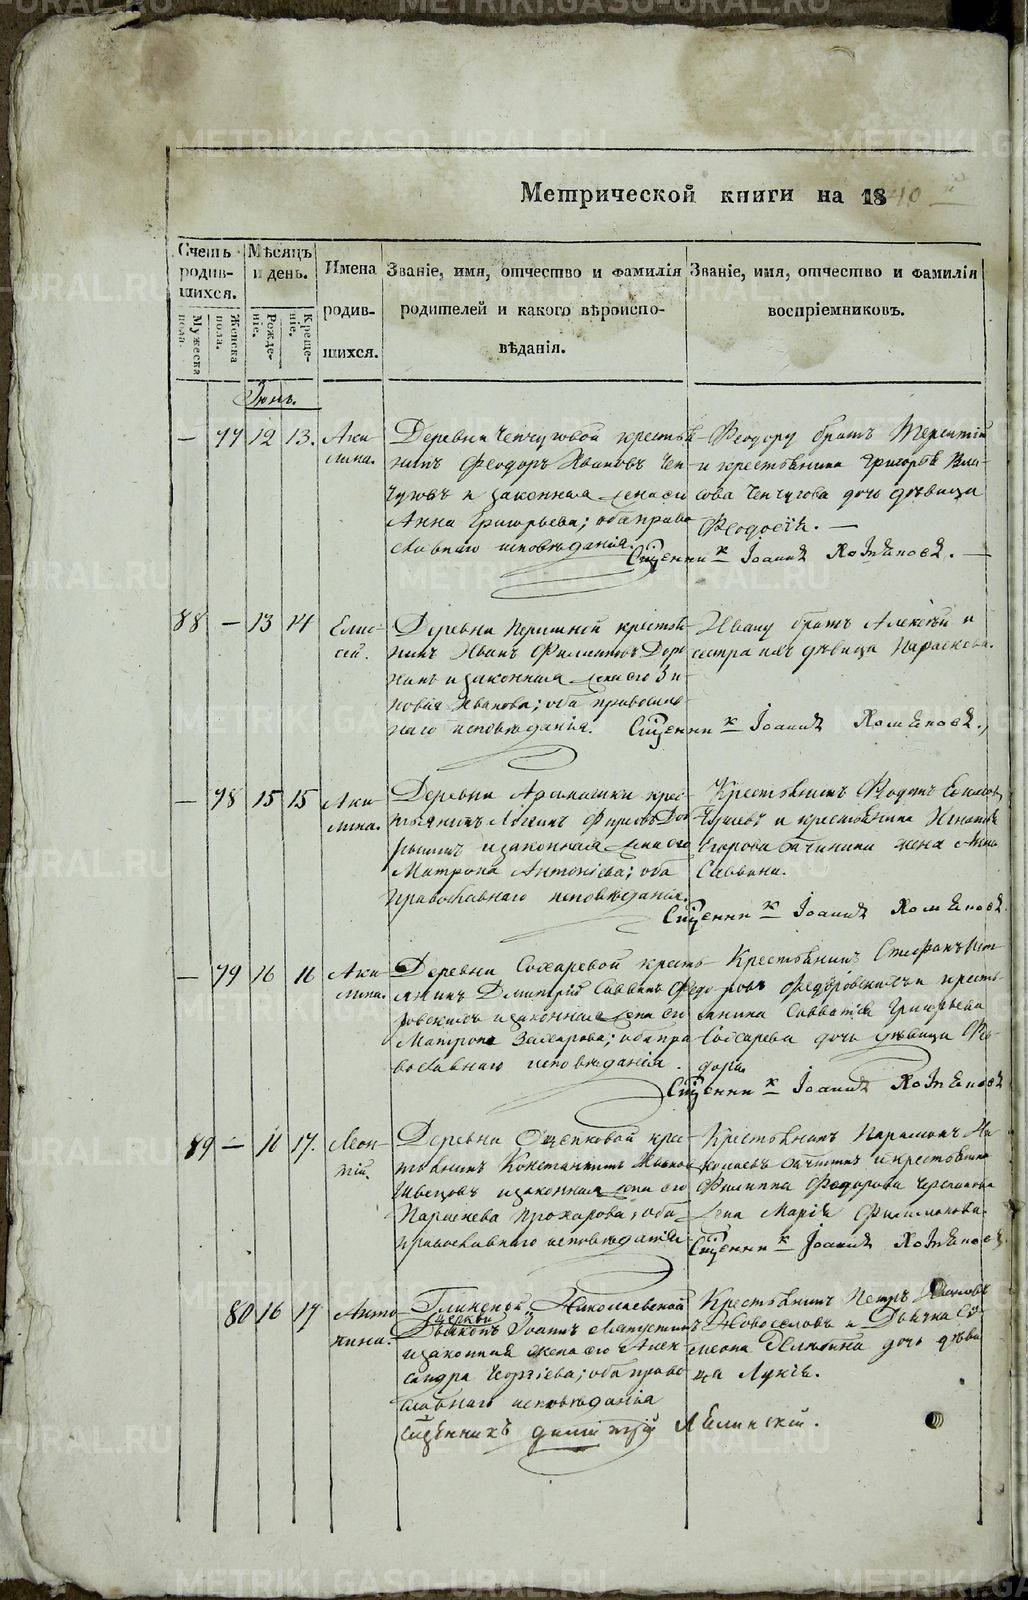 METRIKI.GASO-URAL.RU
Метрической книги на 1840 й
Счетъ родив-шихся.
Мужеска пола.
Женска пола.
Мѣсяцъ и день.
Рожде-ніе.
Креще-ніе.
Имена
родив-
шихся.
Званіе, имя, отчество и фамилія
родителей и какого вѣроиспо-
вѣданія.
Званіе, имя, отчество и фамилія
воспріемниковъ.
Іюнь.
— 77 12 13. Аки-
лина.
Деревни Чепчуговой крестья-
нинъ Феодоръ Ивановъ Чеп-
чуговъ и законная жена его
Анна Григорьева; оба право-
славнаго исповѣданія.
Феодору братъ Терентій
и крестьянина Григорья Вла-
сова Чепчугова дочь дѣвица
Феодосія. —
Сщенникъ Іоаннъ Хомяковъ. —
88 — 13 14 Елис-
сей.
Деревни Першиной крестья-
нинъ Иванъ
и законная жена его Зи-
новія Иванова; оба православ-
наго исповѣданія.
Ивану братъ Алексѣй и
сестра ихъ дѣвица Параскева.
Сщенникъ Іоаннъ Хомяковъ.
— 78 15 15 Аки-
лина.
Деревни Арамашки крес-
тьянинъ
и законная жена его
Матрона Антоніева; оба
православнаго исповѣданія.
Крестьянинъ
и крестьянина Игнатья
Егорова жена Анна
Саввина.
Сщенникъ Іоаннъ Хомяковъ
— 79 16 16 Аки-
лина.
Деревни Сохаревой кресть-
янинъ Димитрій Саввинъ Федо-
ровскихъ и законная жена его
Матрона Захарова; оба пра-
вославнаго исповѣданія.
Крестьянинъ Стефанъ
Федоровскихъ и кресть-
янина Савватія Григорьева
Сохарева дочь дѣвица Фе-
дора.
Сщенникъ Іоаннъ Хомяковъ
89 — 16 17. Леон-
тій.
Деревни Ощепковой крес-
тьянинъ Константинъ Ивановъ
Швецовъ и законная жена его
Параскева Прохорова; оба
православнаго исповѣданія
Крестьянинъ Парамонъ Ни-
колаевъ и крестьянина
Филиппа Федорова Черепанова
жена Марія Филимонова.
Сщенникъ Іоаннъ Хомяковъ
80 16 17 Анто-
нина.
Глинской Николаевской
церкви
Дьяконъ Іоаннъ
и законная жена его Алек-
сандра Георгіева; оба право-
славнаго исповѣданія
Крестьянинъ Петръ
Новоселовъ и Дьячка Си-
меона дочь дѣви-
ца Лукія.
Сщенникъ Димитрій